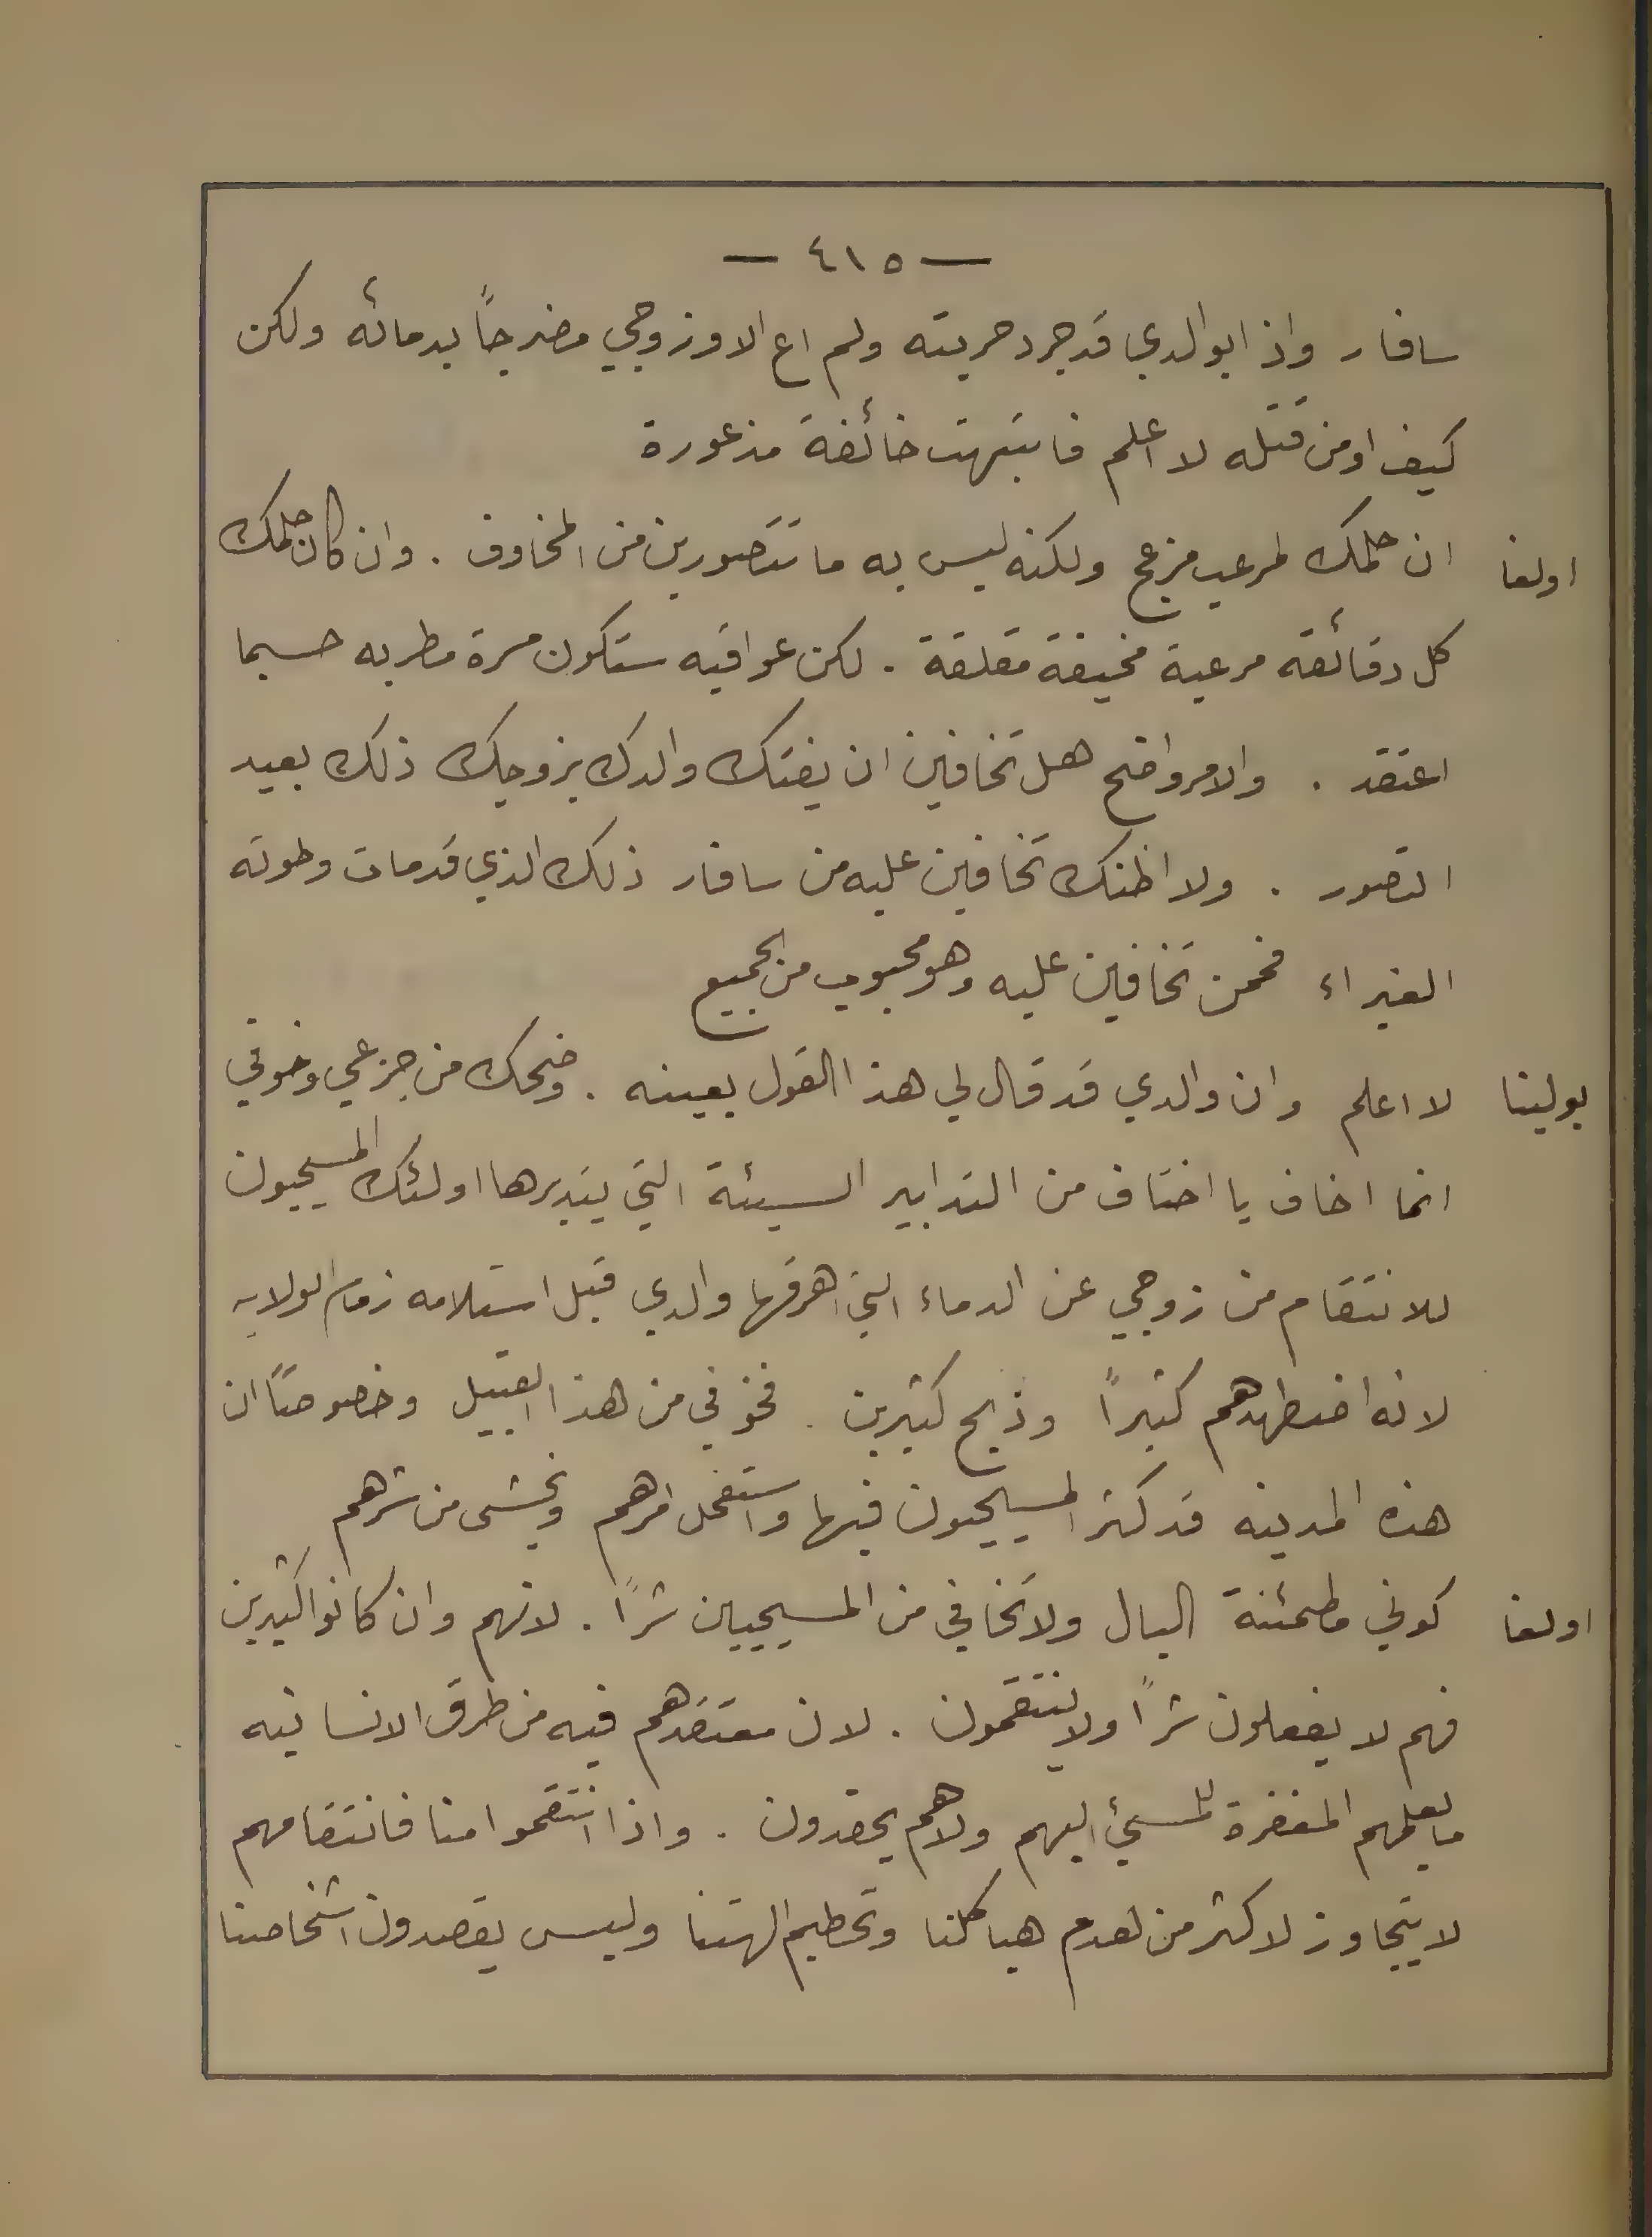 — ٤١٥ —
سافار واذ ابوالدي قد جرد حربته ولم اع الا وزوجي مضرجاً بدمائه ولكن
كيف او من قتله لا اعلم فانتبهت خائفة مذعورة
اولغا ان حلمك لمرعب مزعج ولكنه ليس به ما تتصورين من المخاوف . وان كان حلمك
كل دقائقه مرعبة مخيفة مقلقة . لكن عواقبه ستكون مسرة مطربه حسبما
اعتقد . والامر واضح هل تخافين ان يفتك والدك بزوجك ذلك بعيد
التصور . ولا اظنك تخافين عليه من سافار ذلك الذي قد مات وطوته
الغبراء فممن تخافين عليه وهو محبوب من الجميع
بولينا لا اعلم وان والدي قد قال لي هذا القول بعينه . وضحك من جزعي وخوفي
انما اخاف يا اختاف من التدابير السيئة التي يتدبرها اولئك المسيحيون
للانتقام من زوجي عن الدماء التي اهرقها والدي قبل استلامه زمام الولايه
لانه اضطهدهم كثيراً وذبح كثيرين . فخوفي من هذا القبيل وخصوصاً ان
هذه المدينه قد كثر المسيحيون فيها واستفحل امرهم ويخشى من شرهم
اولغا كوني مطمئنة البال ولا تخافي من المسيحيين شراً . لانهم وان كانوا كثيرين
فهم لا يفعلون شراً ولا ينتقمون . لان معتقدهم فيه من طرق الانسانيه
ما يعلمهم المغفرة للمسيئ اليهم ولا هم يحقدون . واذا انتقموا منا فانتقامهم
لا يتجاوز لاكثر من لهدم هياكلنا وتحطيم الهتنا وليس يقصدون اشخاصنا